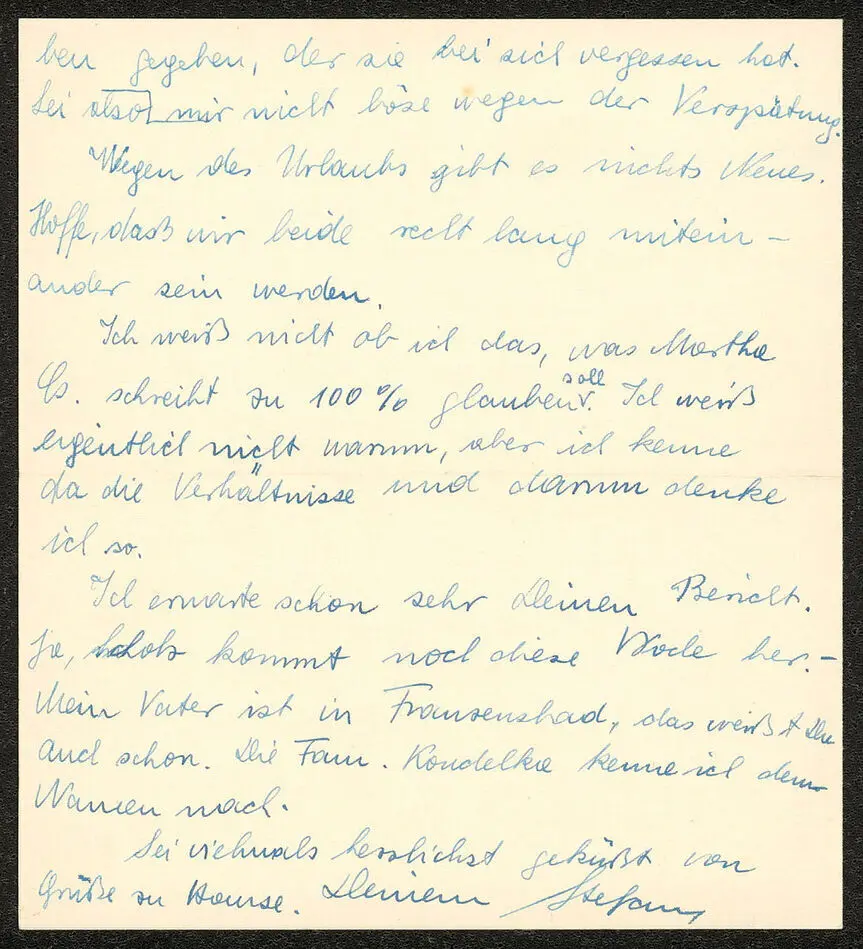 ben gegeben, der sie bei sich vergessen hat.
Sei also mir nicht böse wegen der Verspätung.
Wegen des Urlaubs gibt es nichts Neues.
Hoffe, daß wir beide recht lang mitein-
ander sein werden.
Ich weiß nicht ob ich das, was Martha
Cs. schreibt zu 100% glauben soll. Ich weiß
eigentlich nicht warum, aber ich kenne
da die Verhältnisse und darum denke
ich so.
Ich erwarte schon sehr Deinen Bericht.
Ja, kommt noch diese Woche her.-
Mein Vater ist in Fransensbad, das weißt Du
auch schon. Die Fam. Koudelka kenne ich dem
Namen nach.
Sei vielmals herzlichst geküßt von
Grüße zu Hause. Deinem Stefan